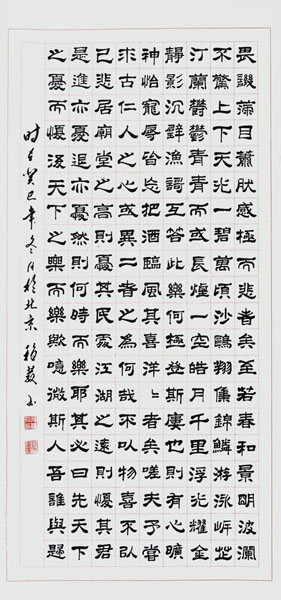 畏譏滿目蕭肰感極而悲者矣至若春和景明波瀾
不驚上下天光一碧萬頃沙鷗翔集錦鱗游泳岸芷
汀蘭鬱鬱青青而或長煙一空皓月千里浮光耀金
靜影沉璧漁謌互答此樂何極登斯廔也則有心曠
神怡寵辱皆忘把酒臨風其喜洋〻者矣嗟夫予嘗
求古仁人之心或異二者之為何哉不以物喜不以
己悲居廟堂之高則憂其民處江湖之遠則憂其君
是進亦憂退亦憂然則何時而樂耶其必曰先天下
之憂而憂後天下之樂而樂歟噫微斯人吾誰與歸
时在癸巳年冬月於北京